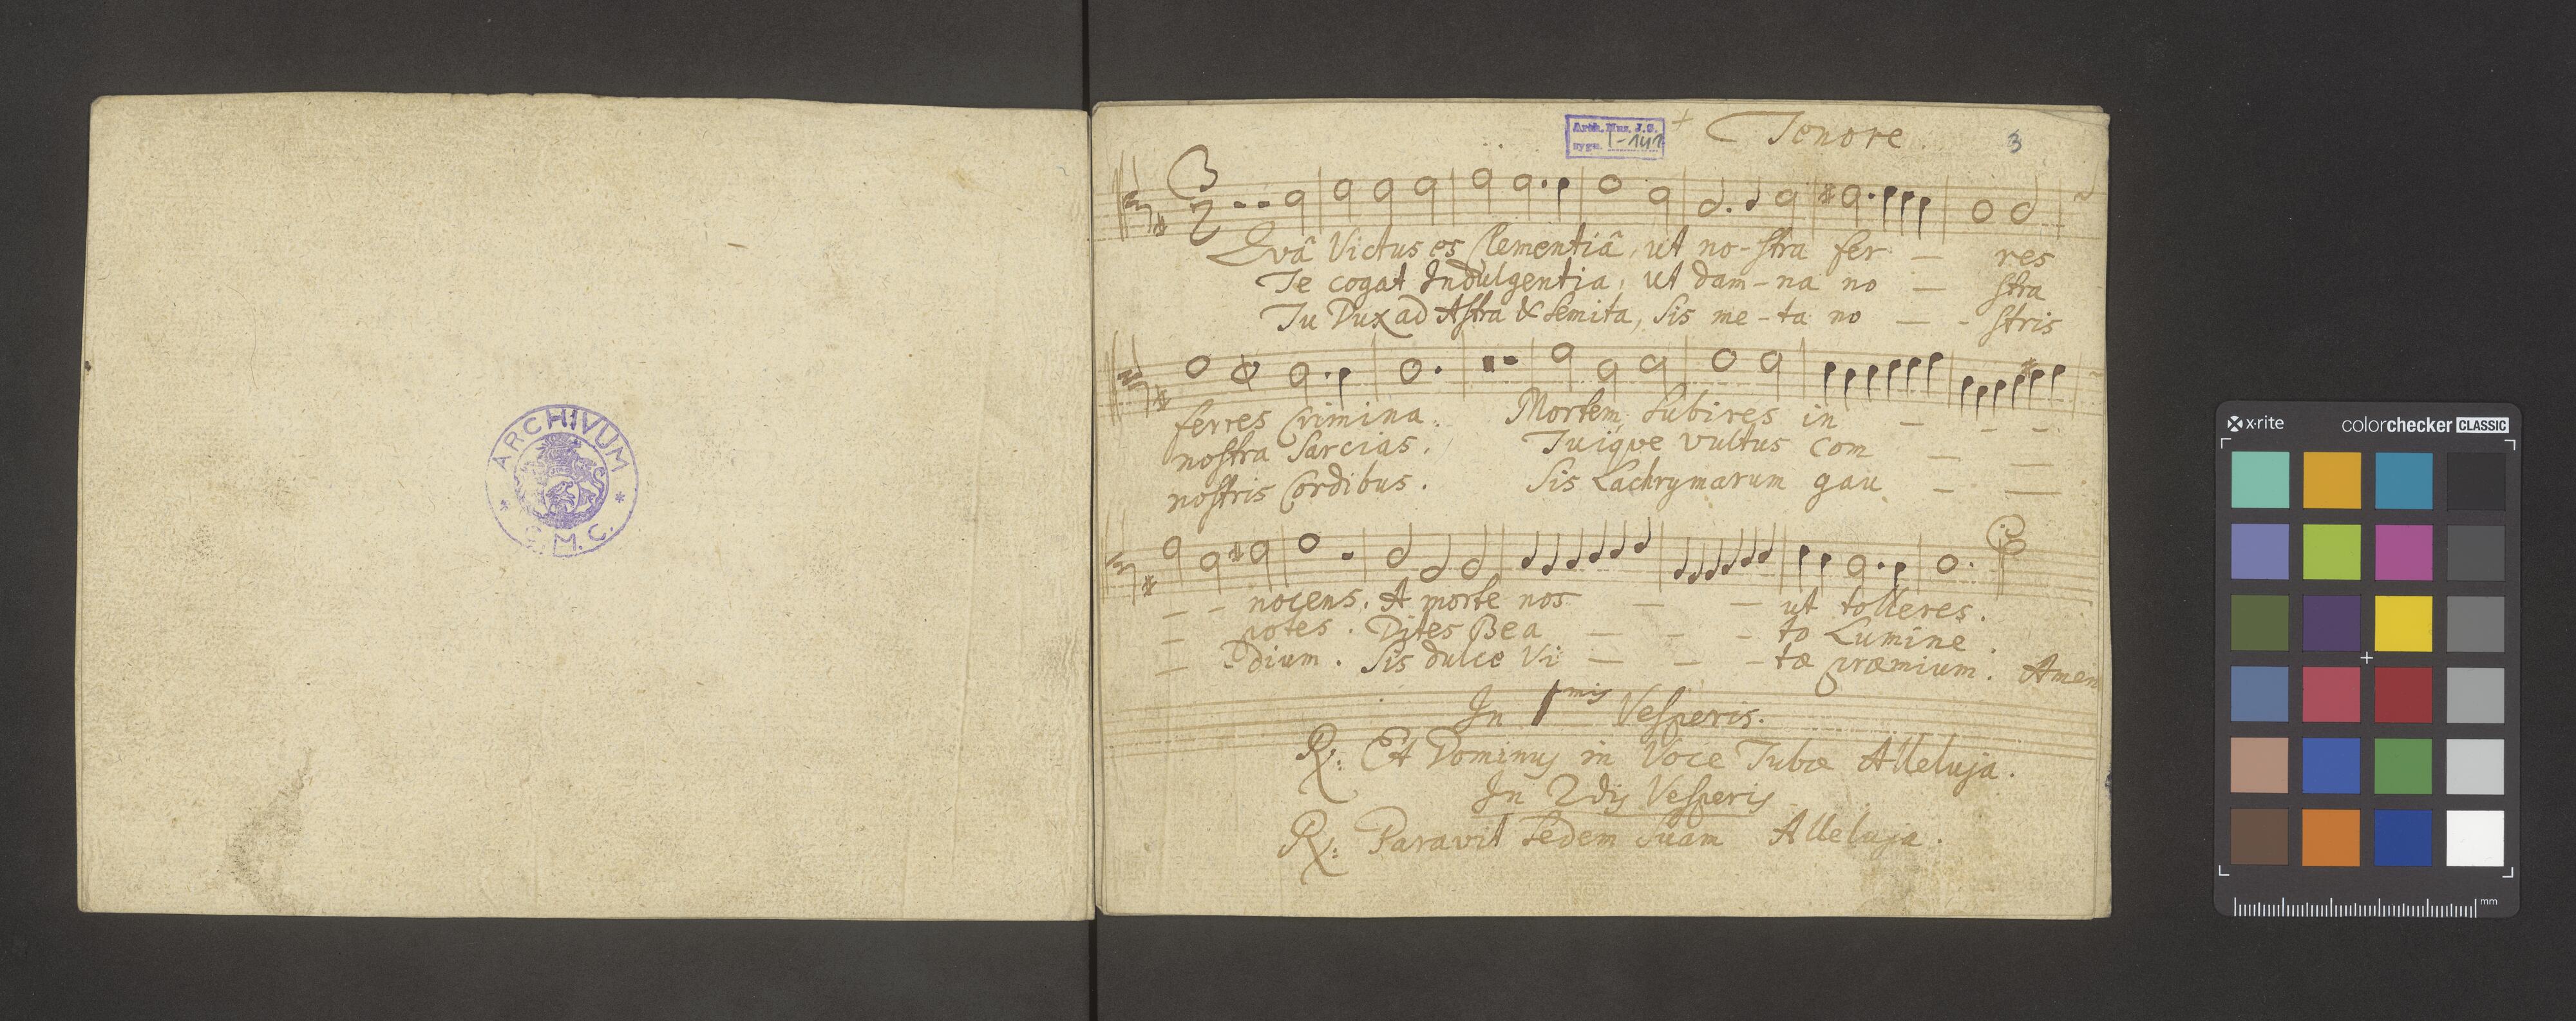 ARCHIVUM
* S.M.C. *
Arch. Mus. J.G.
sygn. I-142
+ Tenore
3
3
2
Qvâ Victus es Clementiâ, ut no-stra fer — res
Te cogat Indulgentia, ut dam-na no — stra
Tu Dux ad Astra & Semita, Sis me-ta no — - stris
ferres Crimina. Mortem Subires in — - -
nostra Sarcias. Tuiqve vultus com — —
nostris Cordibus. Sis Lachrymarum gau — —
— - nocens. A morte nos — — ut tolleres.
— potes. Dites Bea — - - to Lumine.
— - dium. Sis dulce Vi — — - tæ præmium. Amen
In 1mis Vesperis.
R: Et Dominus in Voce Tubæ Alleluja.
In 2dis Vesperis
R: Paravit Sedem Suam Alleluja.
x·rite
colorchecker CLASSIC
mm